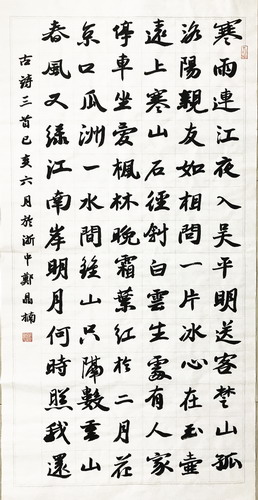 寒雨連江夜入吳平明送客楚山孤
洛陽親友如相問一片冰心在玉壺
遠上寒山石徑斜白雲生處有人家
停車坐愛楓林晚霜葉紅於二月花
京口瓜洲一水間鍾山只隔數重山
春風又綠江南岸明月何時照我還
古詩三首己亥六月於浙中鄭晶楠